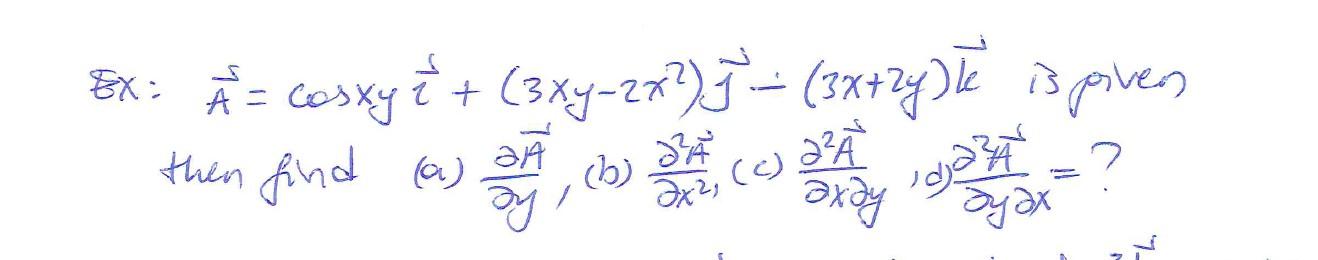 Ex: A⃗ = cosxy i⃗ + (3xy-2x²) j⃗ - (3x+2y) k⃗ is given
then find (a) ∂A⃗/∂y, (b) ∂²A⃗/∂x², (c) ∂²A⃗/∂x∂y, d) ∂²A⃗/∂y∂x = ?